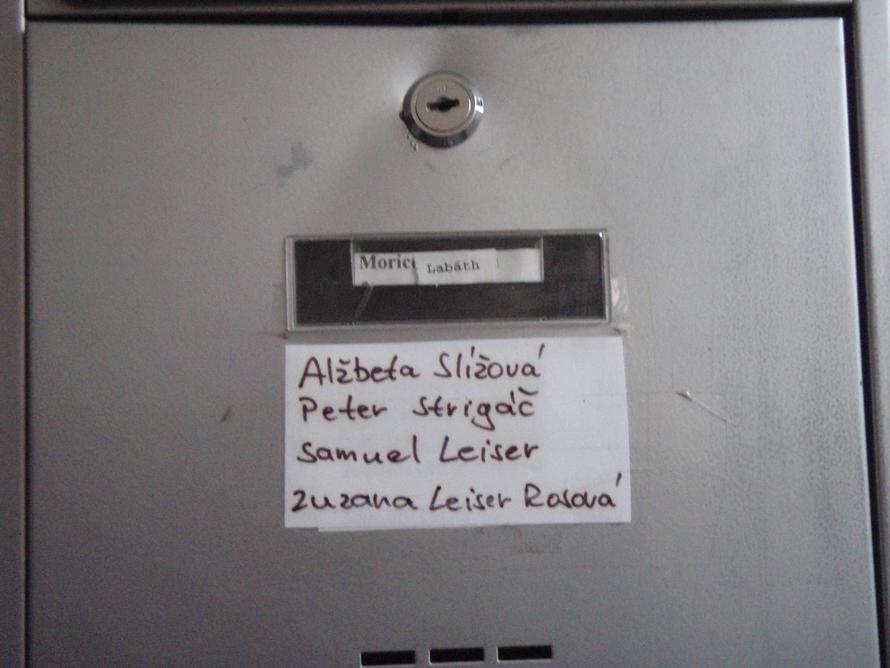 Moric Labáth
Alžbeta Slížová
Peter Strigáč
Samuel Leiser
Zuzana Leiser Rosová